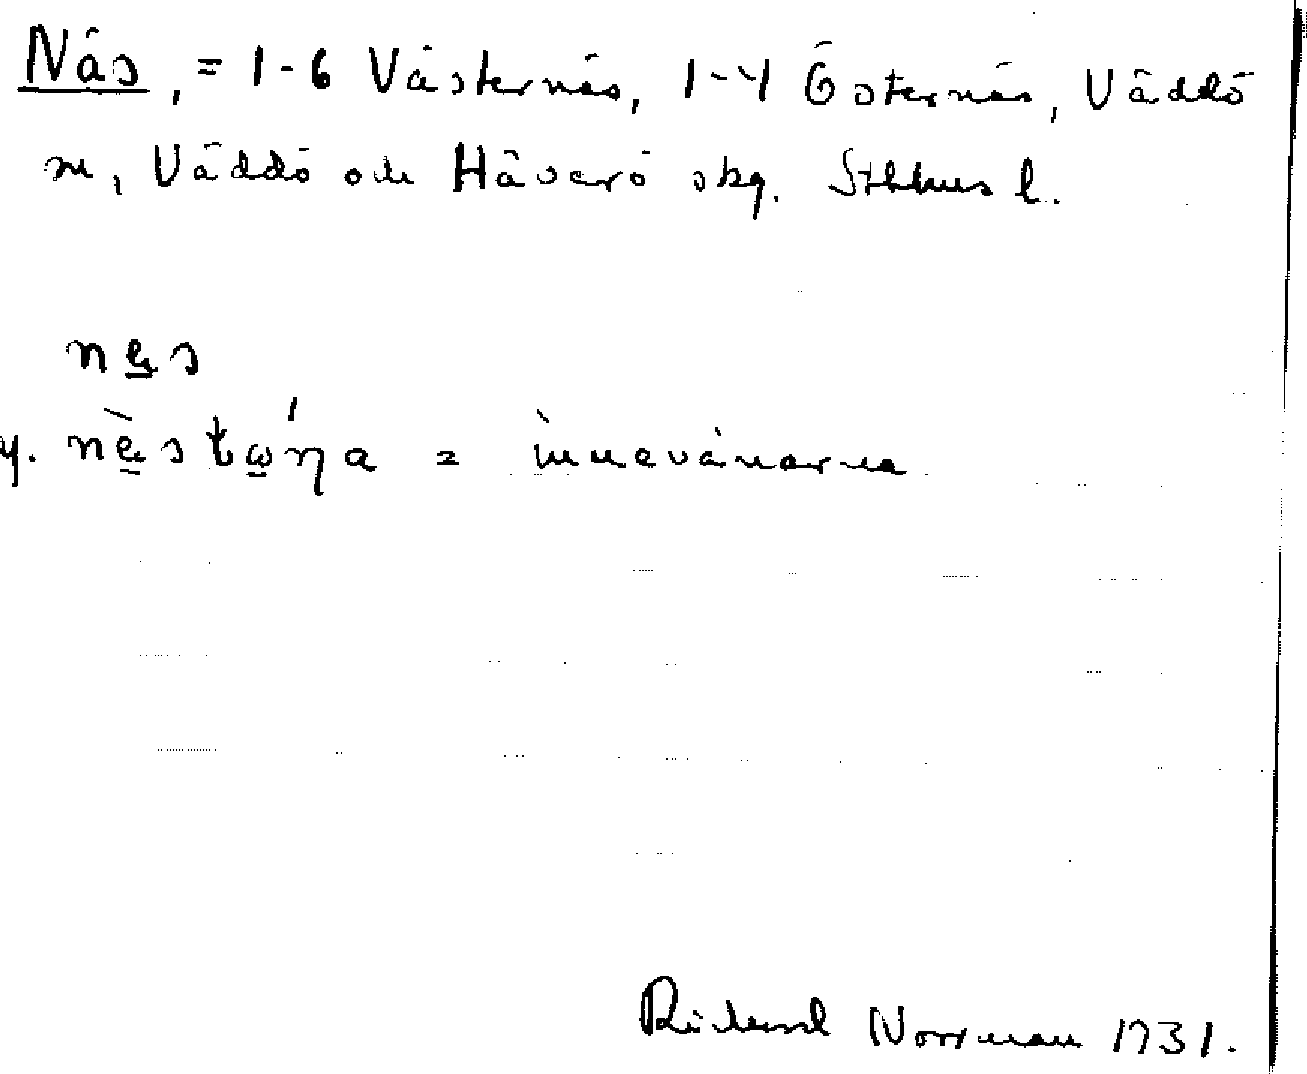 Näs, = 1-6 Västernäs, 1-4 Östernäs, Väddö
sn, Väddö och Häverö skg. Sthlms l.
näs
y. nä̀stώ̨ŋa = innevånarna
Rickard Norrman 1931.